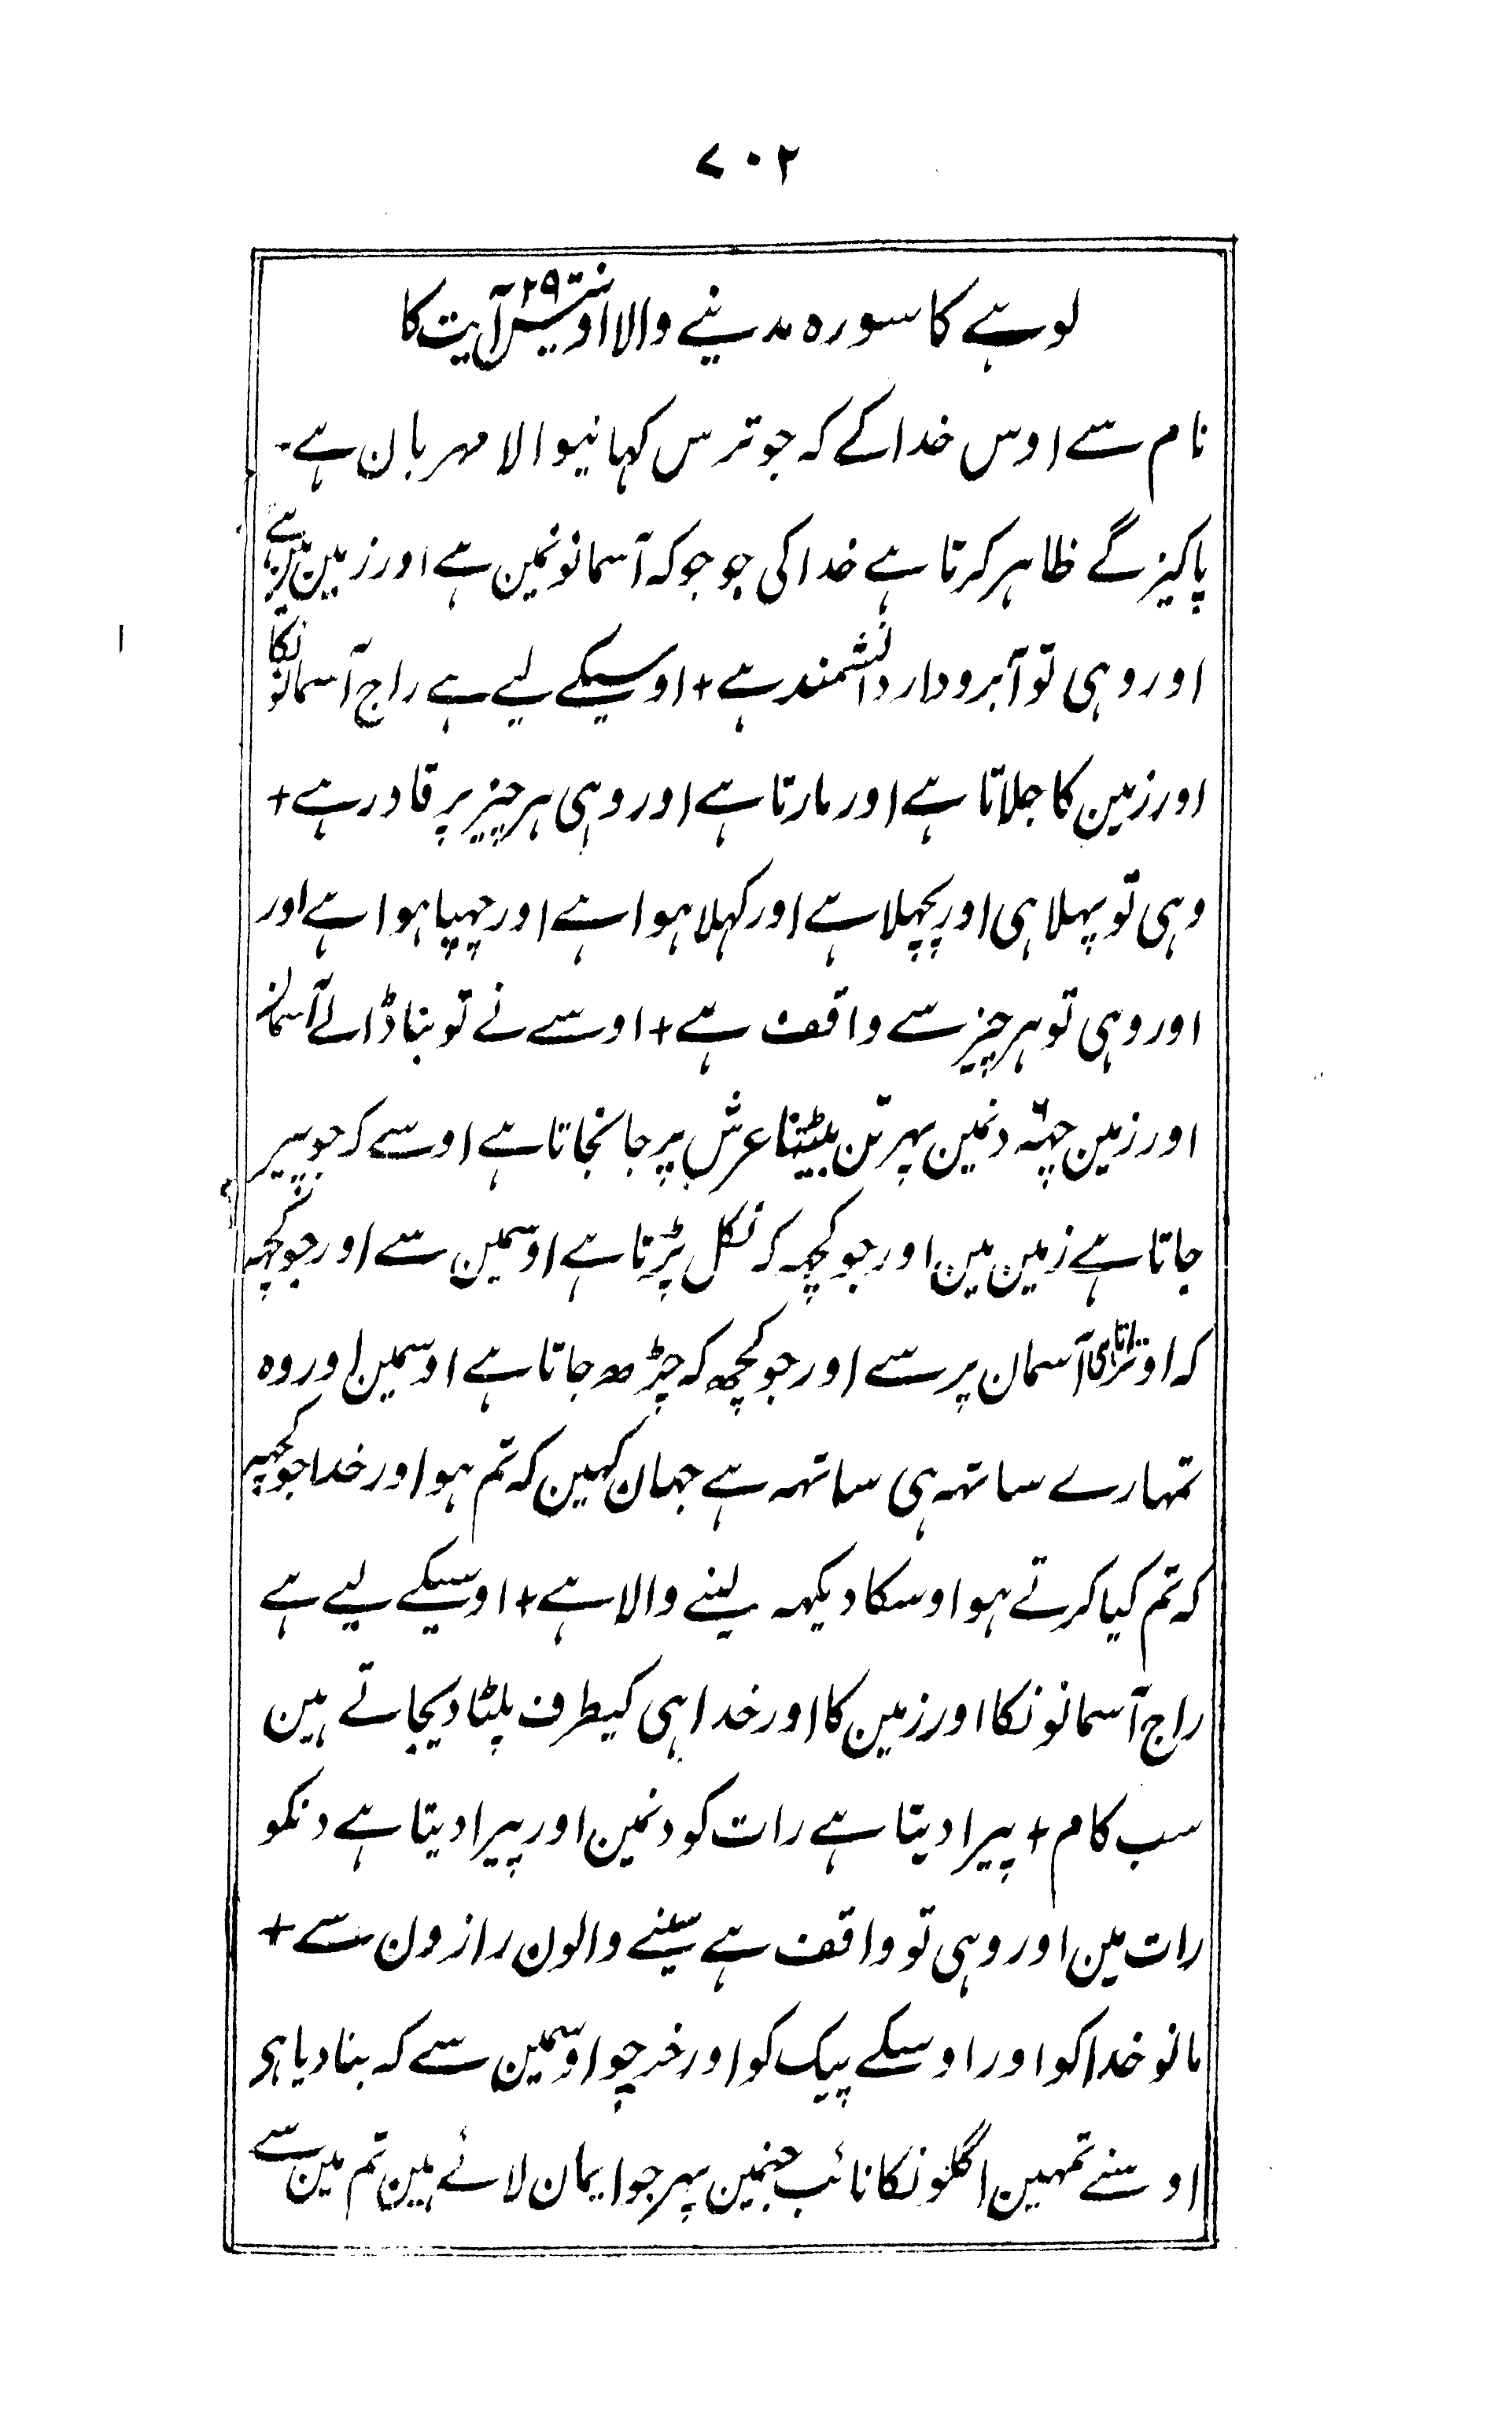 ۷۰۲
لوہے کا سورہ مدینے والا اونتیس ۲۹ آیت کا
نام سے اوس خدا کے کہ جو ترس کہانیوالا مہربان ہے۔
پاکیزگے ظاہر کرتا ہے خدا کی جو جو کہ آسمانونمین ہے اور زمین مین ہے
اور وہی تو آبرودار دانشمند ہے + اوسیکے لیے ہے راج آسمانونکا
اور زمین کا جلاتا ہے اور مارتا ہے اور وہی ہر چیز پر قادر ہے +
وہی تو پہلا ہی اور پچہلا ہے اور کہلا ہوا ہے اور چہپا ہوا ہے اور
اور وہی تو ہر چیز سے واقف ہے + اوسے نے تو بنا ڈالے آسمان
اور زمین چہہ ۶ دنمین پہر تن بیٹہنا عرش پر جانجاتا ہے اوسے کہ جو پیر
جاتا ہے زمین مین اور جو کچہہ کہ نکل پڑتا ہے اوسمین سے اور جو کچہہ
کہ اوتراتا ہی آسمان پر سے اور جو کچھ کہ چڑھ جاتا ہے اوسمین اور وہ
تمہارے ساتہہ ہی ساتہہ ہے جہان کہین کہ تم ہو اور خدا جو کچہہ
کہ تم کیا کرتے ہو اوسکا دیکہہ لینے والا ہے + اوسیکے لیے ہے
راج آسمانونکا اور زمین کا اور خدا ہی کیطرف پلٹا دیجاتے ہین
سب کام + پیرا دیتا ہے رات کو دنمین اور پیرا دیتا ہے دنکو
رات مین اور وہی تو واقف ہے سینے والون رازون سے +
مانو خدا کو اور اوسکے پیک کو اور خرچو اوسمین سے کہ بنا دیا ہی
اوسنے تمہین اگلونکا نائب جنمین پہر جو ایمان لائے ہین تم مین سے